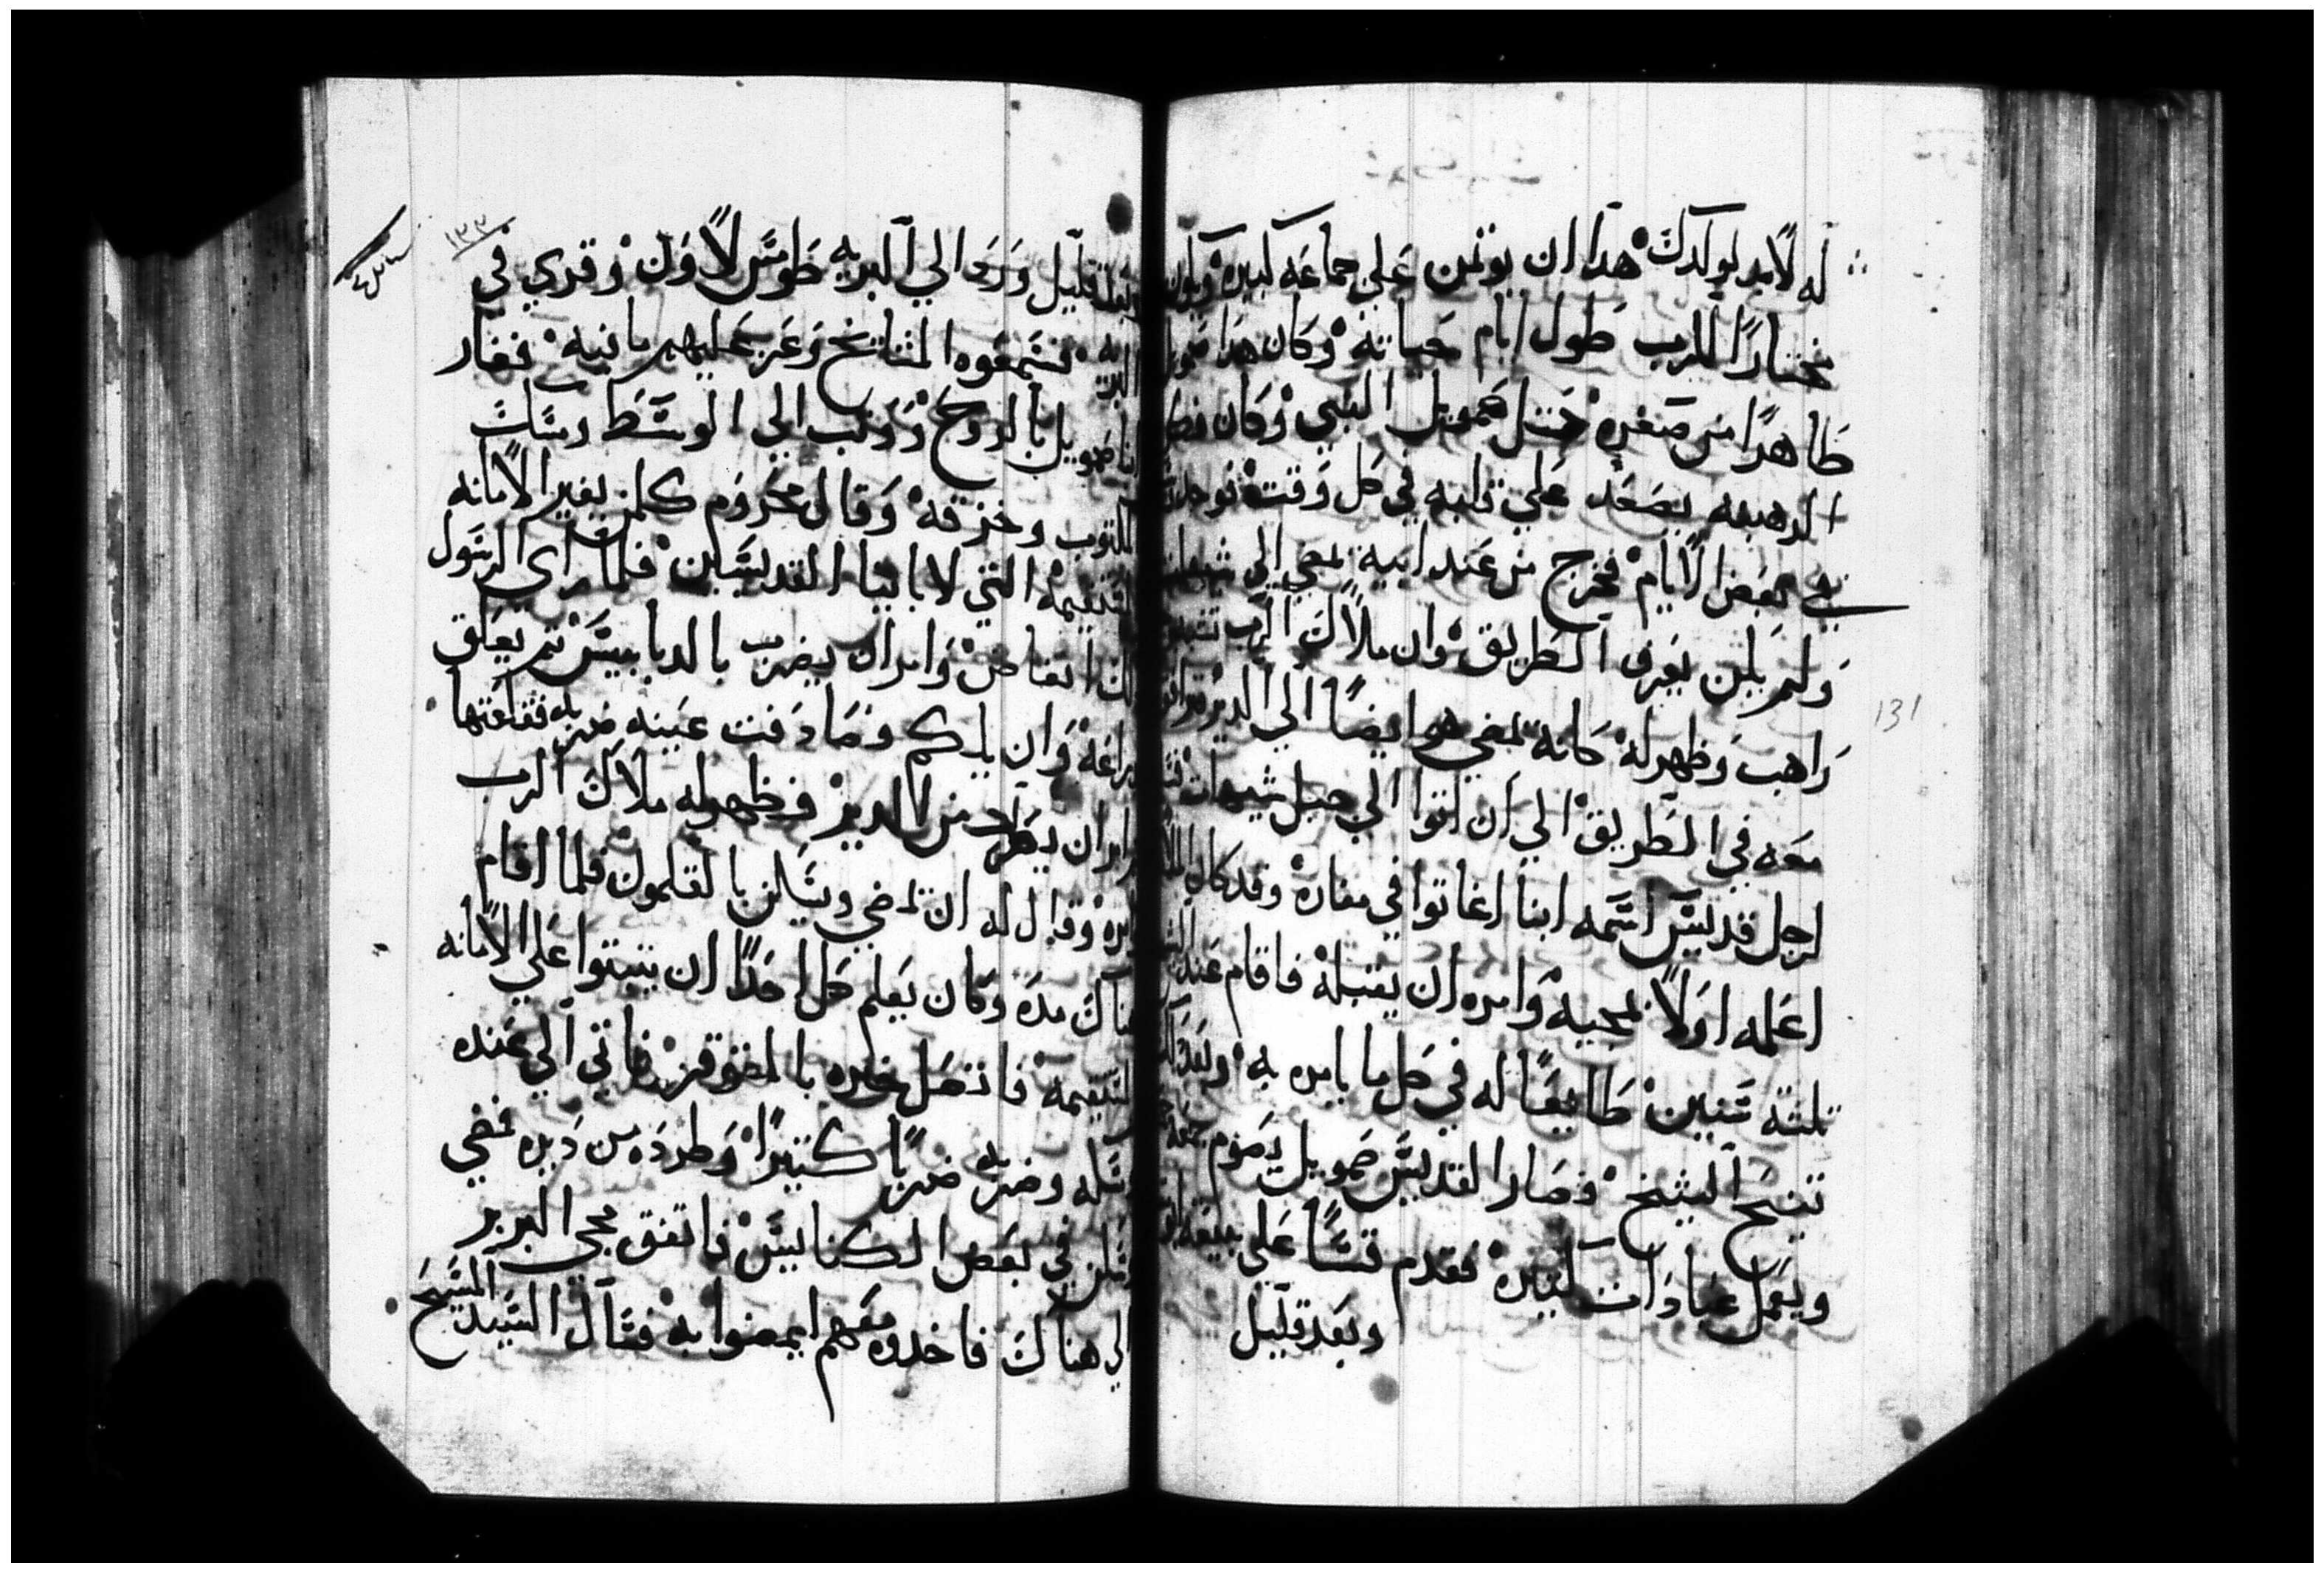 له لابد لولدك هدا ان يوتمن علي جماعه كبيره ويكون
مختارًا للرب طول ايام حياته وكان هدا صمويل
طاهرًا من صغره متل صمويل النبي وكان فكر
الرهبنه يصعد علي قلبه في كل وقت
في بعض الايام فخرج من عند ابيه يمضي الي شيهات
ولم يكن يعرف الطريق وان ملاك الرب
راهب وظهر له كانه يمضي هو ايضًا الي الدير
معه في الطريق الي ان اتوا الي جبل شيهات
لرجل قديس اسمه ابنا اغاتوا في مغاره وقد كان الملاك
اعلمه اولًا بمجيه وامره ان يقبله فاقام عند الشيخ
تلتة سنين طايعًا له في كل ما يامره به وبعد دلك
تنيح الشيخ فصار القديس صمويل يصوم جمعه
ويعمل عبادات كتيره فقدم قسًا علي بيعة
وبعد قليل
١٣٢
وبعد قليل ورد الي البريه طومس لاون وقري في
البريه فسمعوه المشايخ وعز عليهم مانيه فغار
انبا صمويل بالروح ووتب الي الوسط ومسك
المكتوب وخزقه وقال محروم كلمن يغير الامانه
المستقيمه التي لابايينا القديسين فلما راي الرسول
دلك اغتاض وامر ان يضرب بالدبابيس تم يعلق
بدراعه وان يلكم وصادفت عينه ضربه فقلعتها
وامر ان يطرد من الدير فظهر له ملاك الرب
وامره وقال له ان تمضي وتسكن بالقلمون فلما اقام
هناك مده وكان يعلم كل احدًا ان يتبتوا علي الامانه
المستقيمه فاتصل خبره بالمقوقز فاتي الي عنده
وساله وضربه ضربًا كتيرًا وطرده من ديره فمضي
وسكن في بعض الكنايس فاتفق مجي البربر
الي هناك فاخدوه معهم ليمضوا به فسال السيد المسيح
131